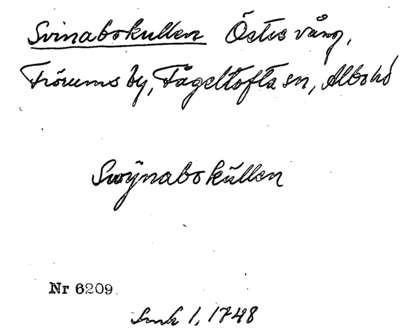 Svinabokullen Östre vång,
Frörums by, Fågeltofta sn, Albo hd
Swÿnabokúllen
Nr 6209.
Smk 1, 1748